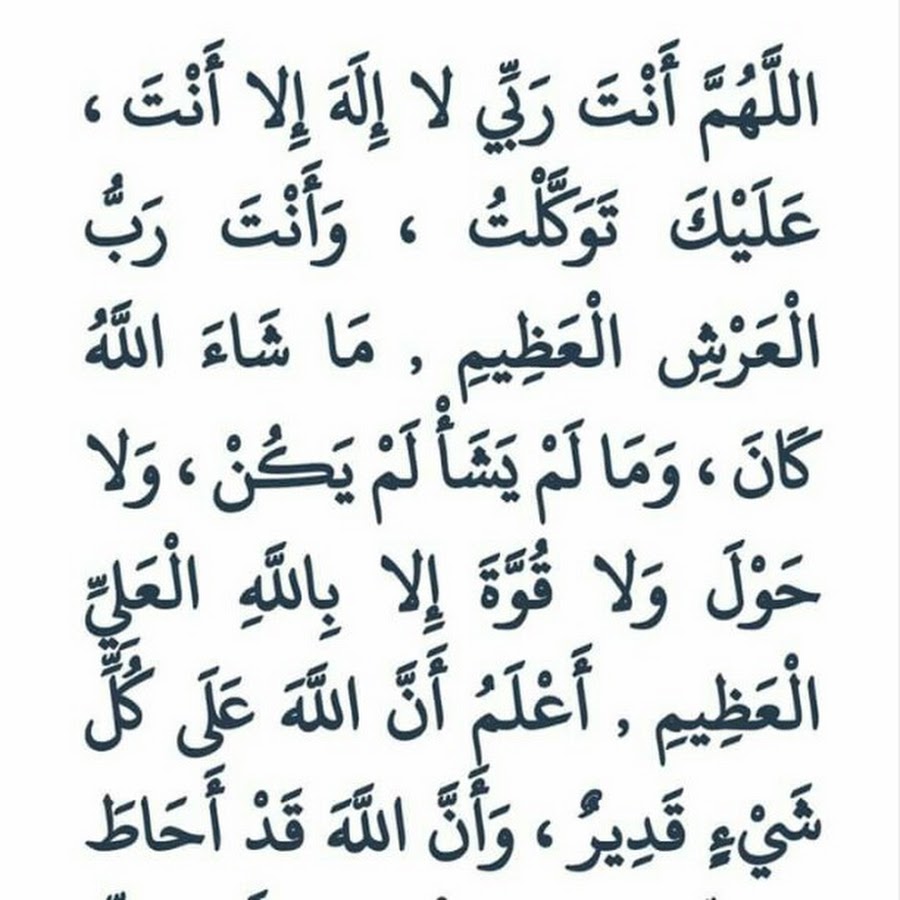 اللَّهُمَّ أَنْتَ رَبِّي لا إِلَهَ إِلا أَنْتَ ،
عَلَيْكَ تَوَكَّلْتُ ، وَأَنْتَ رَبُّ
الْعَرْشِ الْعَظِيمِ , مَا شَاءَ اللَّهُ
كَانَ ، وَمَا لَمْ يَشَأْ لَمْ يَكُنْ ، وَلا
حَوْلَ وَلا قُوَّةَ إِلا بِاللَّهِ الْعَلِيِّ
الْعَظِيمِ , أَعْلَمُ أَنَّ اللَّهَ عَلَى كُلِّ
شَيْءٍ قَدِيرٌ ، وَأَنَّ اللَّهَ قَدْ أَحَاطَ